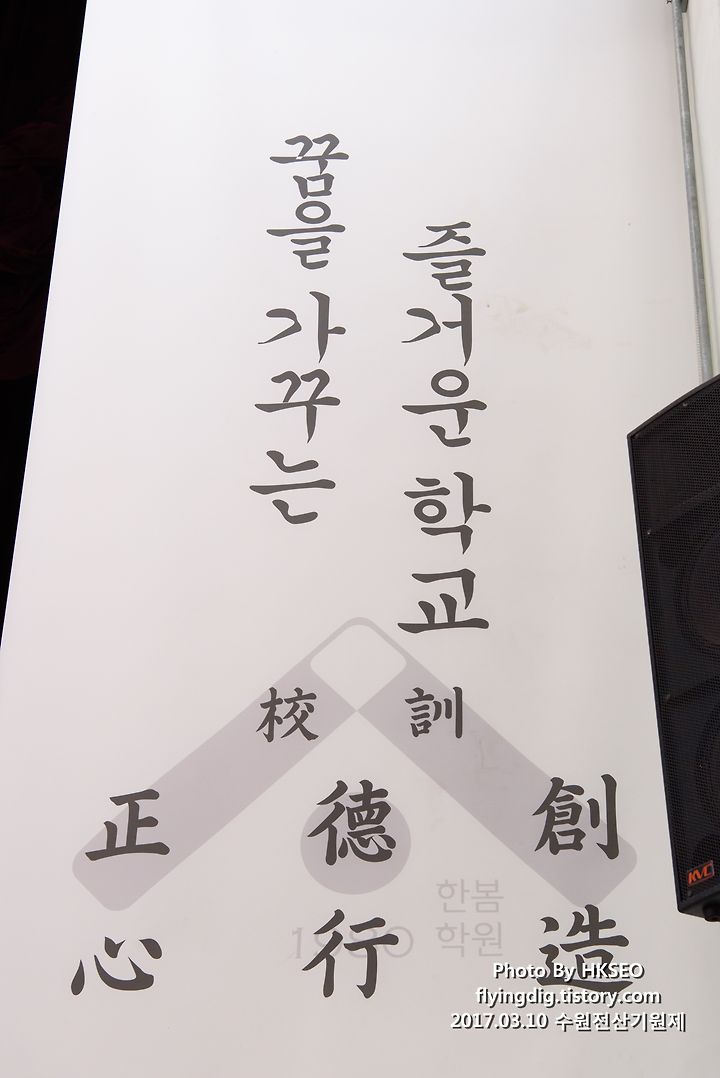 꿈을 가꾸는
즐거운 학교
校訓
正心
德行
創造
1980
한봄
학원
KVC
Photo By HKSEO
flyingdig.tistory.com
2017.03.10 수원전산기원제